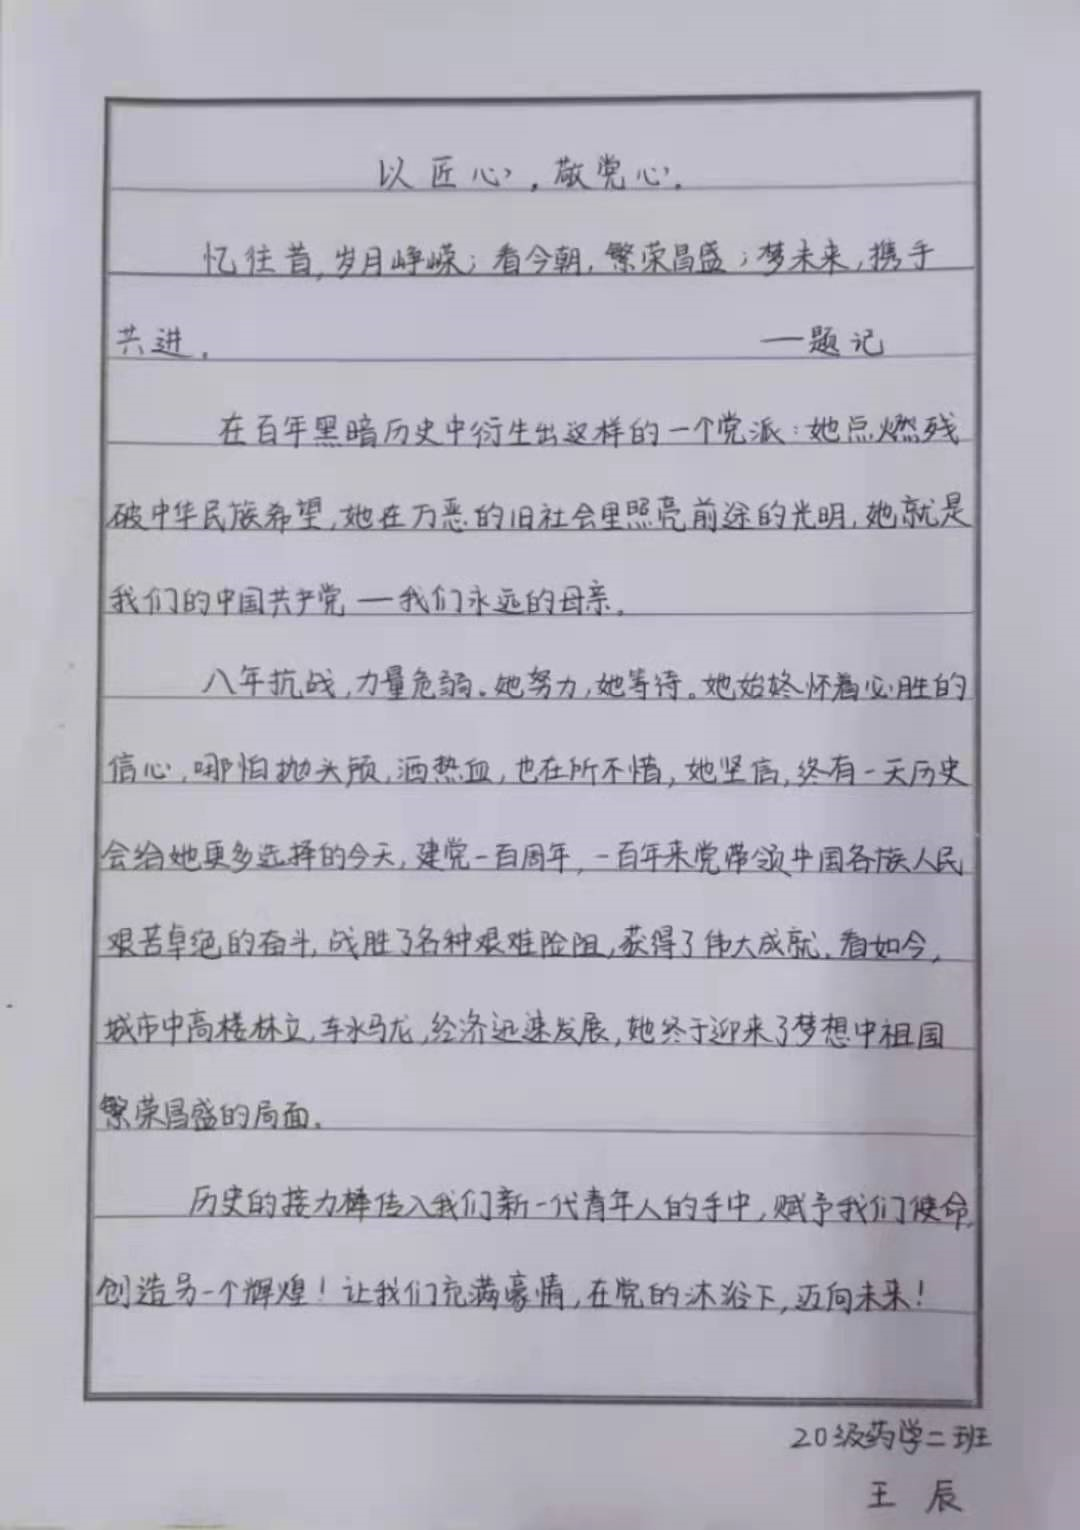 以匠心,敬党心.
忆往昔,岁月峥嵘;看今朝,繁荣昌盛;梦未来,携手
共进.一题记
在百年黑暗历史中衍生出这样的一个党派:她点燃残
破中华民族希望,她在万恶的旧社会里照亮前途的光明,她就是
我们的中国共产党一我们永远的母亲.
八年抗战,力量危弱.她努力,她等待。她始终怀着必胜的
信心,哪怕抛头颅,洒热血,也在所不惜,她坚信,终有一天历史
会给她更多选择的今天,建党一百周年,一百年来党带领中国各族人民
艰苦卓绝的奋斗,战胜了各种艰难险阻,获得了伟大成就.看如今,
城市中高楼林立,车水马龙,经济迅速发展,她终于迎来了梦想中祖国
繁荣昌盛的局面.
历史的接力棒传入我们新一代青年人的手中,赋予我们使命,
创造另一个辉煌!让我们充满豪情,在党的沐浴下,迈向未来!
20级药学二班
王辰